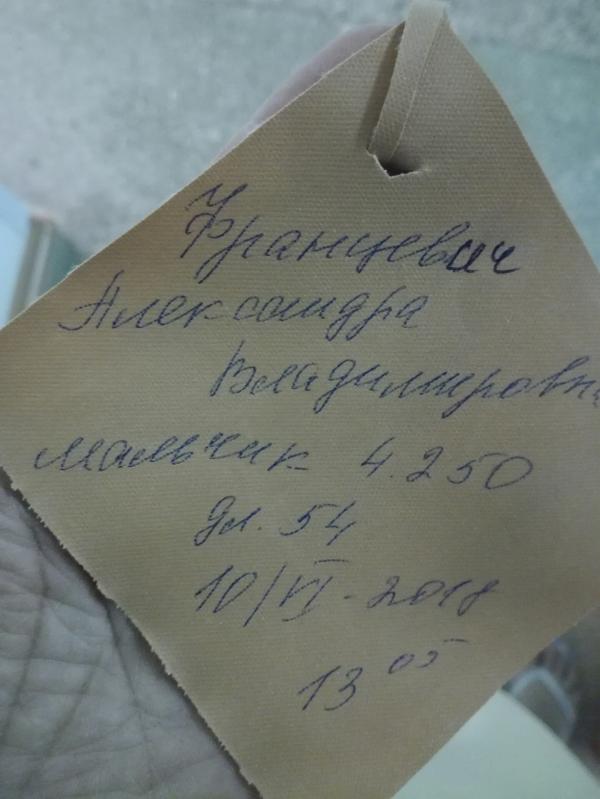 Францевич
Александра
Владимировн
мальчик 4.250
дл. 54
10/VI-2018
13 05